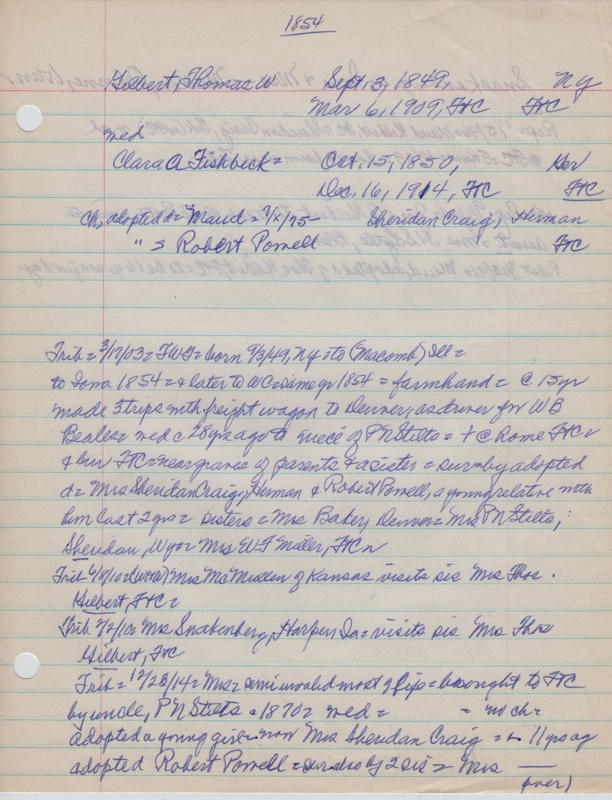 1854
Gilbert, Thomas W Sept. 3, 1849, NY
Mar 6, 1909, FtC FtC
med
Clara A Fishbeck = Oct. 15, 1850, Ger
Dec. 16, 1914, FtC FtC
Ch, adopted d = Maud = ?/x/75- Sheridan Craig, Herman
" s Robert Powell FtC
Trib = 3/12/03 = TWG = born 9/3/49, NY = to (Macomb) Ill =
to Iowa 1854 = & later to WC = same yr 1854 = farmhand = @ 15 yr
made 3 trips with freight wagon to Denver, as driver for WB
Beales = med c 28 yrs ago to niece of PN Stilts = + @ home FtC =
& bur FtC = near graves of parents & a sister = sur by adopted
d = Mrs Sheridan Craig, Herman & Robert Powell, a young relative with
him last 2 yrs = sisters = Mrs Baker, Denver = Mrs PN Stilts,
Sheridan, Wyo = Mrs WF Miller, FtC
Trib Mrs McMullen of Kansas visits sis Mrs Thos.
Gilbert, FtC =
Trib Mrs Snakenberg, Harper, Ia = visits sis Mrs Thos
Gilbert, FtC
Trib = 12/28/14 = Mrs = semi invalid most of life = brought to FtC
by uncle, PN Stilts = 1870 = med = = no ch =
adopted a young girl = now Mrs Sheridan Craig = 11 yrs ag
adopted Robert Powell = sur also by 2 sis = Mrs
(over)